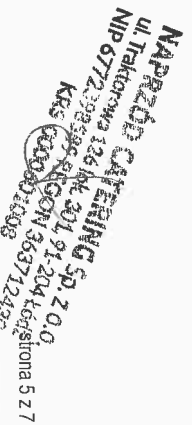 NAPRZÓD CATERING Sp. z o.o.
ul. Traktorowa 126 lok. 301, 91-204 Łódź
NIP 6772 REGON 363712430
KRS
strona 5 z 7